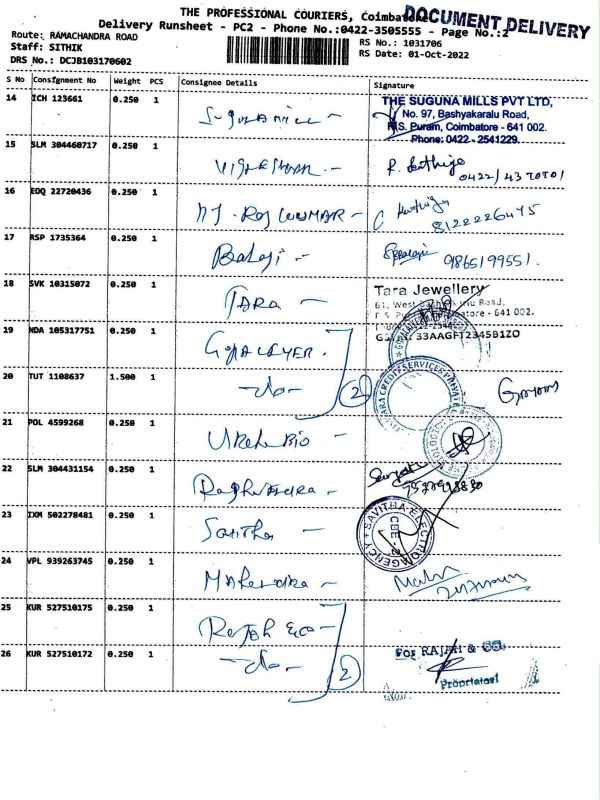 THE PROFESSIONAL COURIERS, Coimbatore
DOCUMENT DELIVERY
Delivery Runsheet - PC2 - Phone No.:0422-3505555 - Page No.:2
Route: RAMACHANDRA ROAD
RS No.: 1031706
Staff: SITHIK
RS Date: 01-Oct-2022
DRS No.: DCJB103170602
S No Consignment No Weight PCS Consignee Details Signature
14 ICH 123661 0.250 1 Suguna Mill -
THE SUGUNA MILLS PVT LTD,
No. 97, Bashyakaralu Road,
R.S. Puram, Coimbatore - 641 002.
Phone: 0422 - 2541229.
15 SLM 304460717 0.250 1
16 EDQ 22720436 0.250 1 N J. Raj Kumar -
8122226475
17 RSP 1735364 0.250 1 Balaji -
9865199551.
18 SVK 10315072 0.250 1 TARA -
Tara Jewellery
61, West
641 002.
33AAGFT2345B1ZO
19 NDA 105317751 0.250 1
20 TUT 1108637 1.500 1 -do- 2
21 POL 4599268 0.250 1
22 SLM 304431154 0.250 1 Raghvendra -
23 IXM 502278481 0.250 1 Savitha -
SAVITHA ELECTRO AGENCY
CBE - 2
24 VPL 939263745 0.250 1 Mahendra -
25 KUR 527510175 0.250 1 Rajah &co-
26 KUR 527510172 0.250 1 -do- 2
For RAJAH & CO.
Proprietor